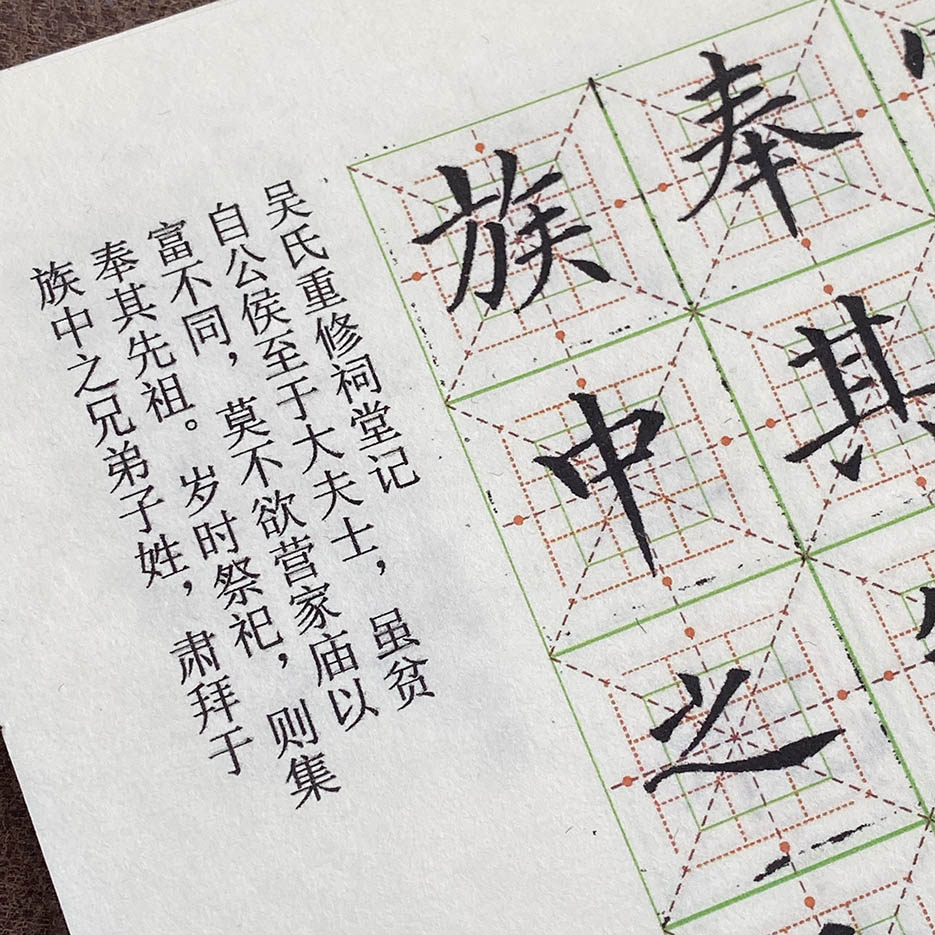 奉其
族中之
吴氏重修祠堂记
自公侯至于大夫士，虽贫
富不同，莫不欲营家庙以
奉其先祖。岁时祭祀，则集
族中之兄弟子姓，肃拜于